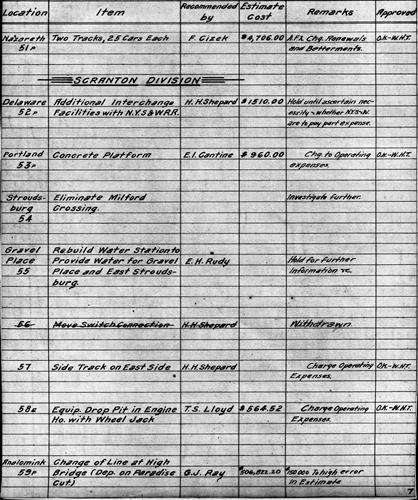 Location Item Recommended by Estimate Cost Remarks Approved
Nazareth Two Tracks, 25 Cars Each F. Cizek $4,706.00 A.F.&. Chg. Renewals O.K.-W.H.T.
51P and Betterments.
SCRANTON DIVISION
Delaware Additional Interchange H.H.Shepard $1510.00 Hold until ascertain nec-
52P Facilities with N.Y.S&W.R.R. essity & whether N.Y.S-W.
are to pay part expense.
Portland Concrete Platform E.I. Cantine $960.00 Chg. to Operating O.K.-W.H.T.
53P expenses.
Strouds- Eliminate Milford Investigate further.
burg Crossing.
54
Gravel Rebuild Water Station to
Place Provide Water for Gravel E.H. Rudy Hold for Further
55 Place and East Strouds- Information &c.
burg.
56 Move Switch Connection H.H.Shepard Withdrawn
57 Side Track on East Side H.H.Shepard Charge Operating O.K.-W.H.T.
Expenses.
58E Equip. Drop Pit in Engine T.S. Lloyd $564.52 Charge Operating O.K.-W.H.T.
Ho. with Wheel Jack Expenses.
Analomink Change of Line at High
59P Bridge (Dep. on Paradise G.J. Ray $506,822.20 $150000 To high error
Cut.) in Estimate
7